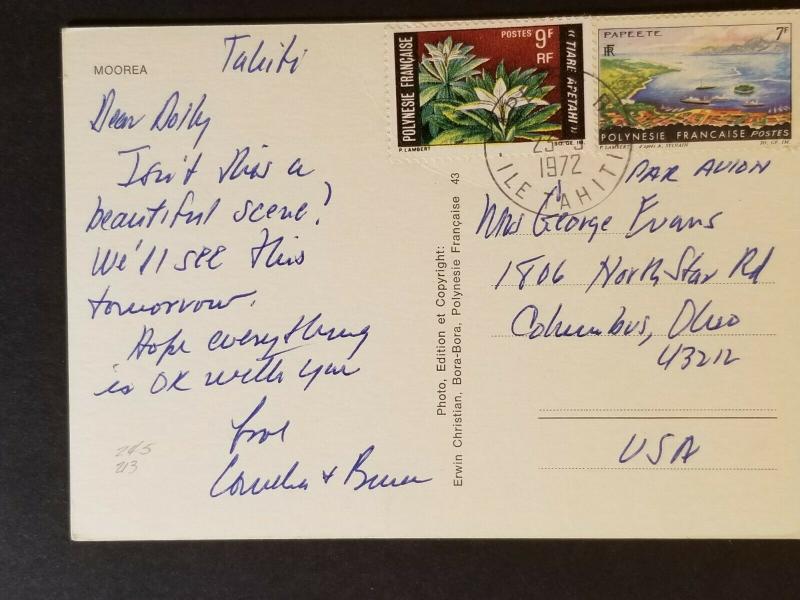 MOOREA
Tahiti
Dear Dolly
Isn't this a
beautiful scene?
We'll see this
tomorrow.
Hope everything
is OK with you
love
Cornelia +
245
213
Photo, Edition et Copyright:
Erwin Christian, Bora-Bora, Polynesie Française 43
POLYNESIE FRANÇAISE
POSTES 9F
RF
"TIARE APETAHI"
P. LAMBERT
SO. GE. IM.
PAPEETE 7F
RF
POLYNESIE FRANÇAISE POSTES
P. LAMBERT
SO. GE. IM.
1972
ILE TAHITI
PAR AVION
Mrs George Evans
1806 North Star Rd
Columbus, Ohio
43212
USA